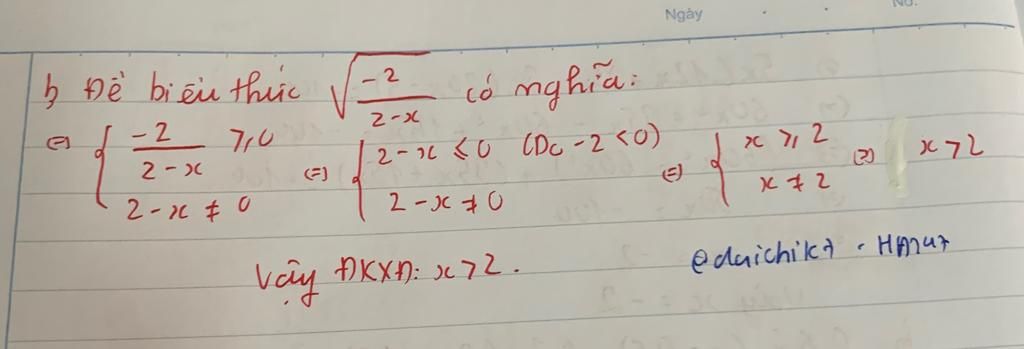 Ngày
No.
b, Để biểu thức √(-2/(2-x)) có nghĩa:
⇔ { -2/(2-x) ⩾ 0 ; 2-x ≠ 0 ⇔ { 2-x ≤ 0 (Do -2 < 0) ; 2-x ≠ 0 ⇔ { x ⩾ 2 ; x ≠ 2 ⇔ x > 2
Vậy ĐKXĐ: x > 2.